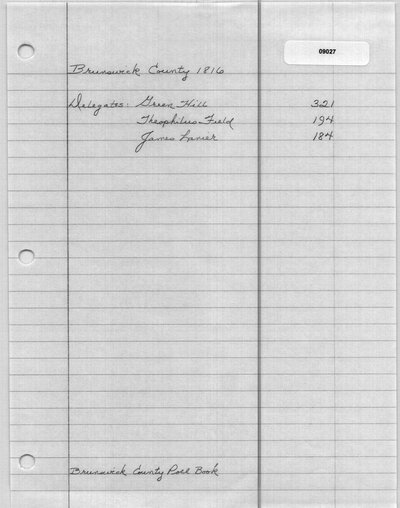 09027
Brunswick County 1816
Delegates: Green Hill 321
Theophilus Field 194
James Lanier 184
Brunswick County Poll Book